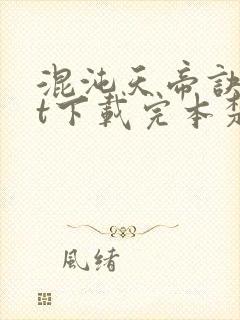 混沌天帝訣
t下載完本
風緒